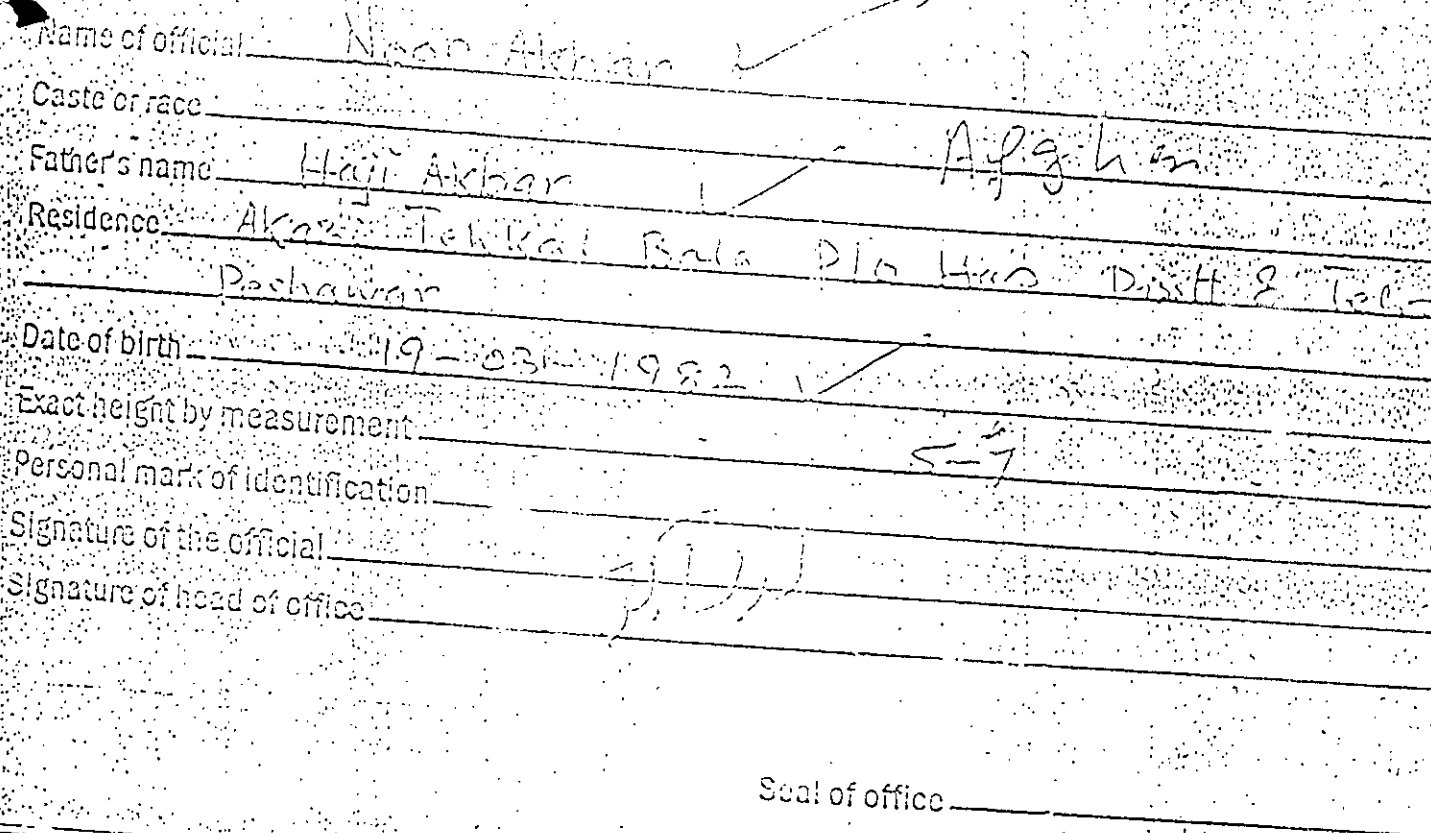 Name of official Noor Akbar
Caste or race Afghan
Father's name Haji Akbar
Residence Tehkal Bala P/o Distt & Teh-
Peshawar
Date of birth 19-03-1982
Exact height by measurement 5-7
Personal mark of identification
Signature of the official
Signature of head of office
Seal of office